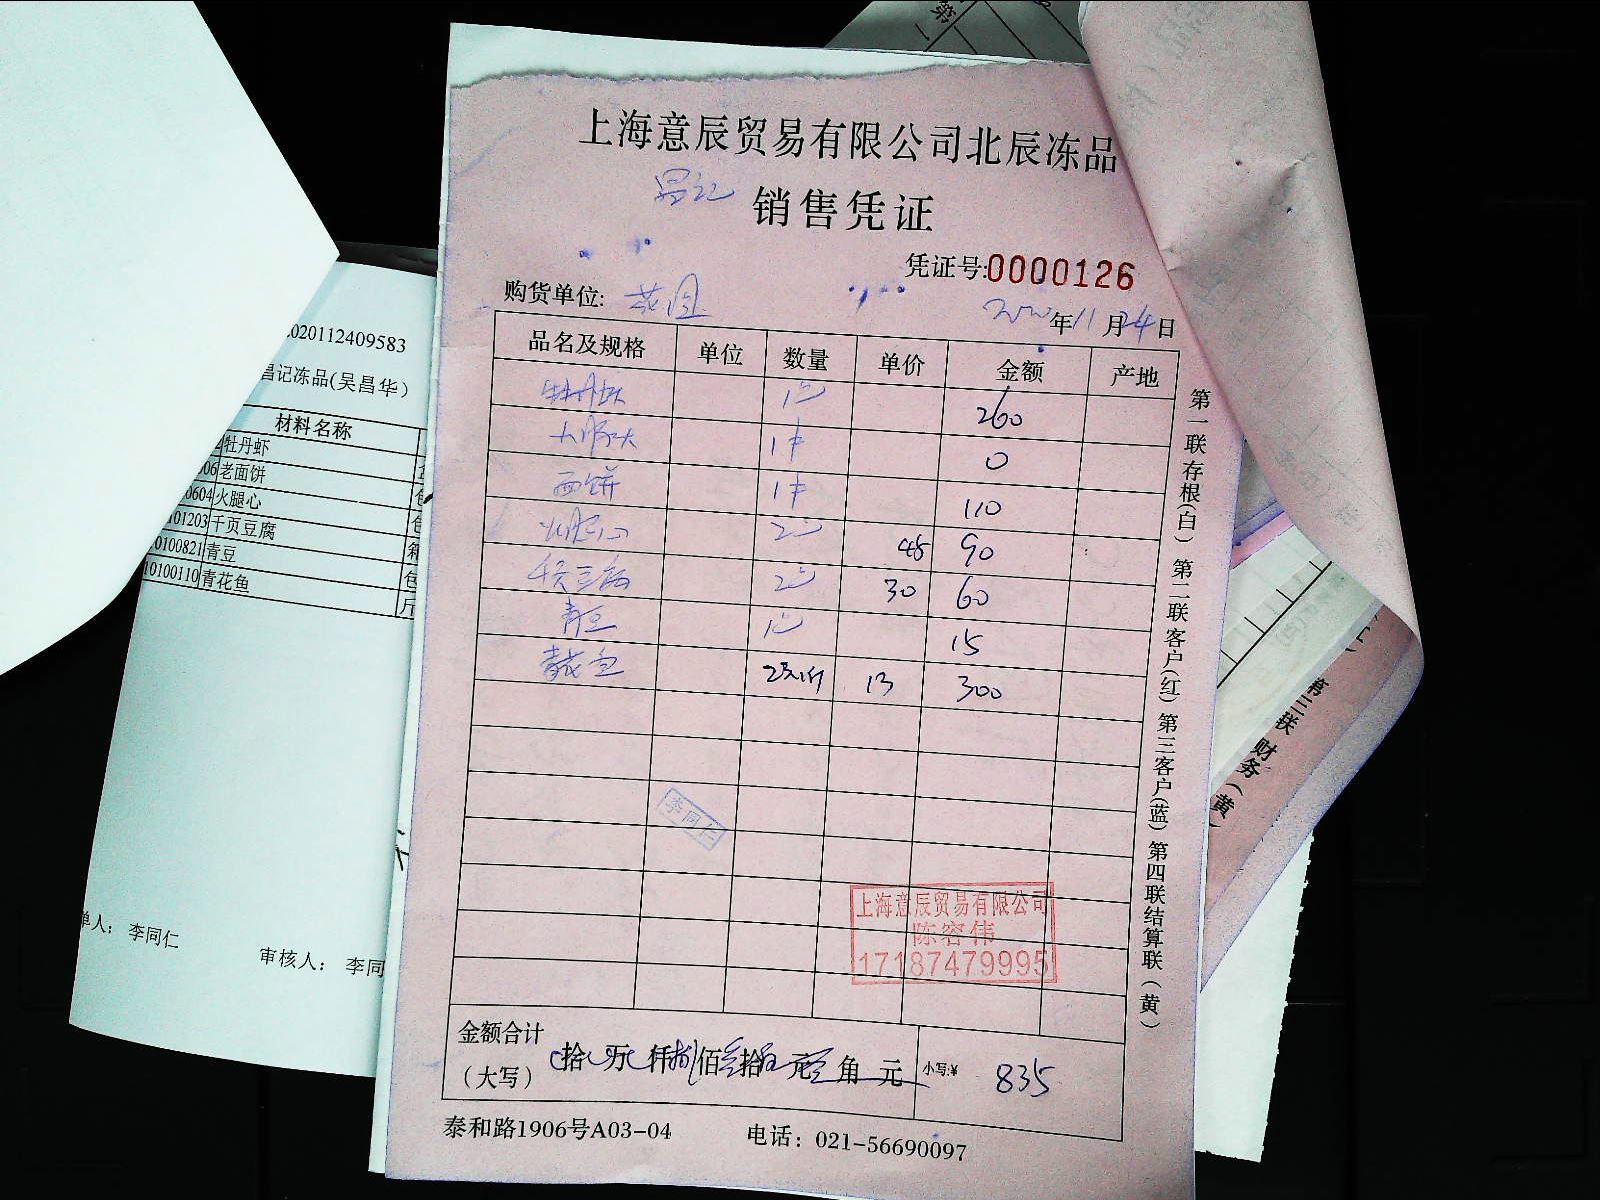 上海意辰贸易有限公司北辰冻品
昌记
销售凭证
凭证号:0000126
购货单位:
年11月24日
品名及规格 单位 数量 单价 金额 产地
牡丹虾 260
1件 0
面饼 1件 110
火腿心 90
2 30 60
青豆 15
青花鱼 13 300
李同仁
上海意辰贸易有限公司
陈容伟
17187479995
金额合计
(大写) 拾 万 仟捌佰叁拾伍元 角 元 小写:¥ 835
泰和路1906号A03-04 电话：021-56690097
第一联存根(白) 第二联客户(红) 第三客户(蓝) 第四联结算联(黄)
020112409583
昌记冻品(吴昌华)
材料名称
牡丹虾
06 老面饼
0604 火腿心
101203 千页豆腐 箱
0100821 青豆 包
10100110 青花鱼 斤
单人： 李同仁
审核人： 李同
第三联 财务(黄)
第一